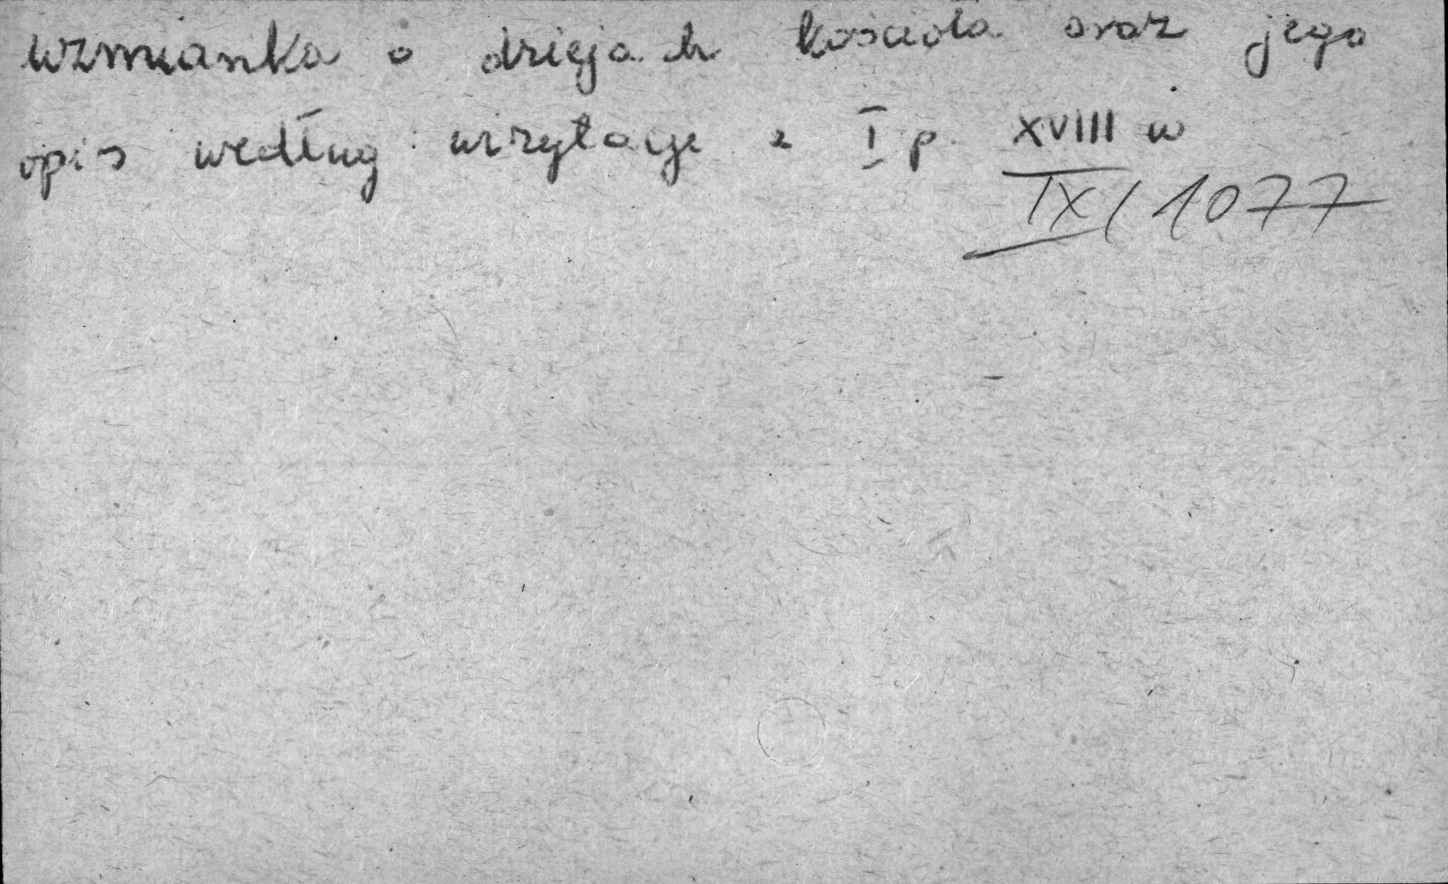 wzmianka o dziejach kościoła oraz jego
opis według wizytacji z I p. XVIII w
IX/1077